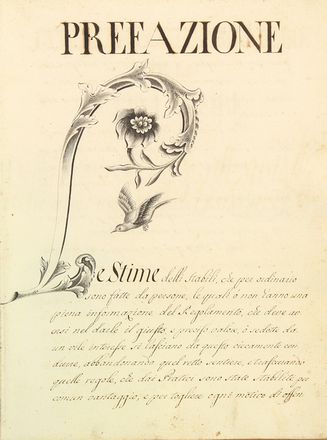 PREFAZIONE
Le Stime delli Stabili, che per ordinario
sono fatte da persone, le quali o non hanno una
piena informazione del Regolamento, che deve a=
versi nel darle il giusto, e preciso valore, o sedote da
un vile interesse si lasciano da questo ciecamente con=
durre, abbandonando quel retto sentiere, e trascurando
quelle regole, che dai Pratici sono state stabilite per
comun vantaggio, e per togliere ogni motivo di offen